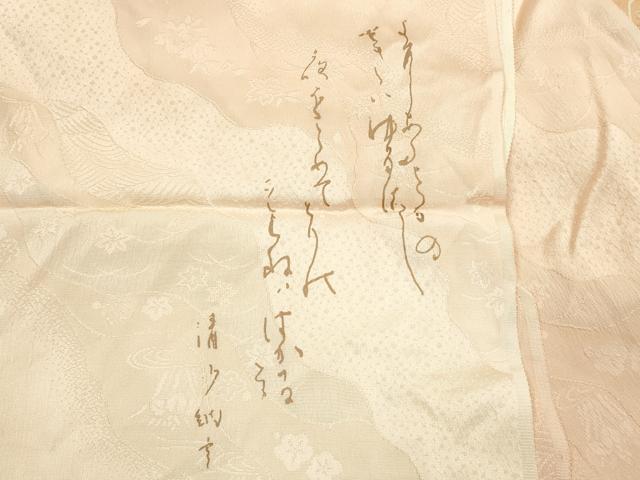 よにあふさかの
せきハゆるさし
夜をこめて
とりの
そらねハはかる
とも
清少納言